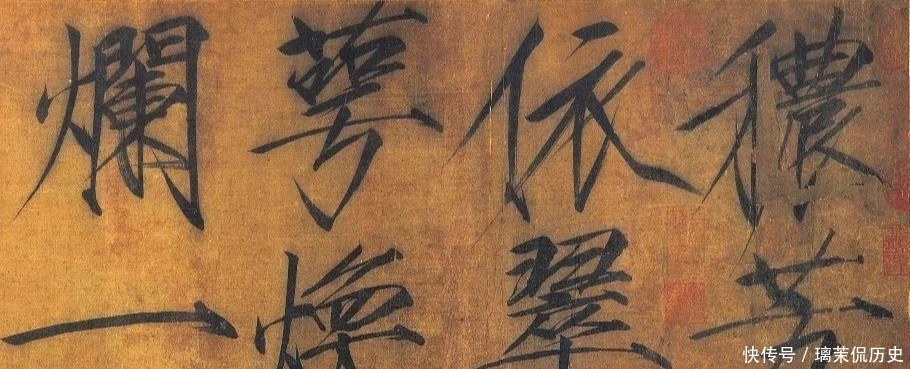 穠芳
依翠
萼煥
爛一
快传号 / 璃茉侃历史